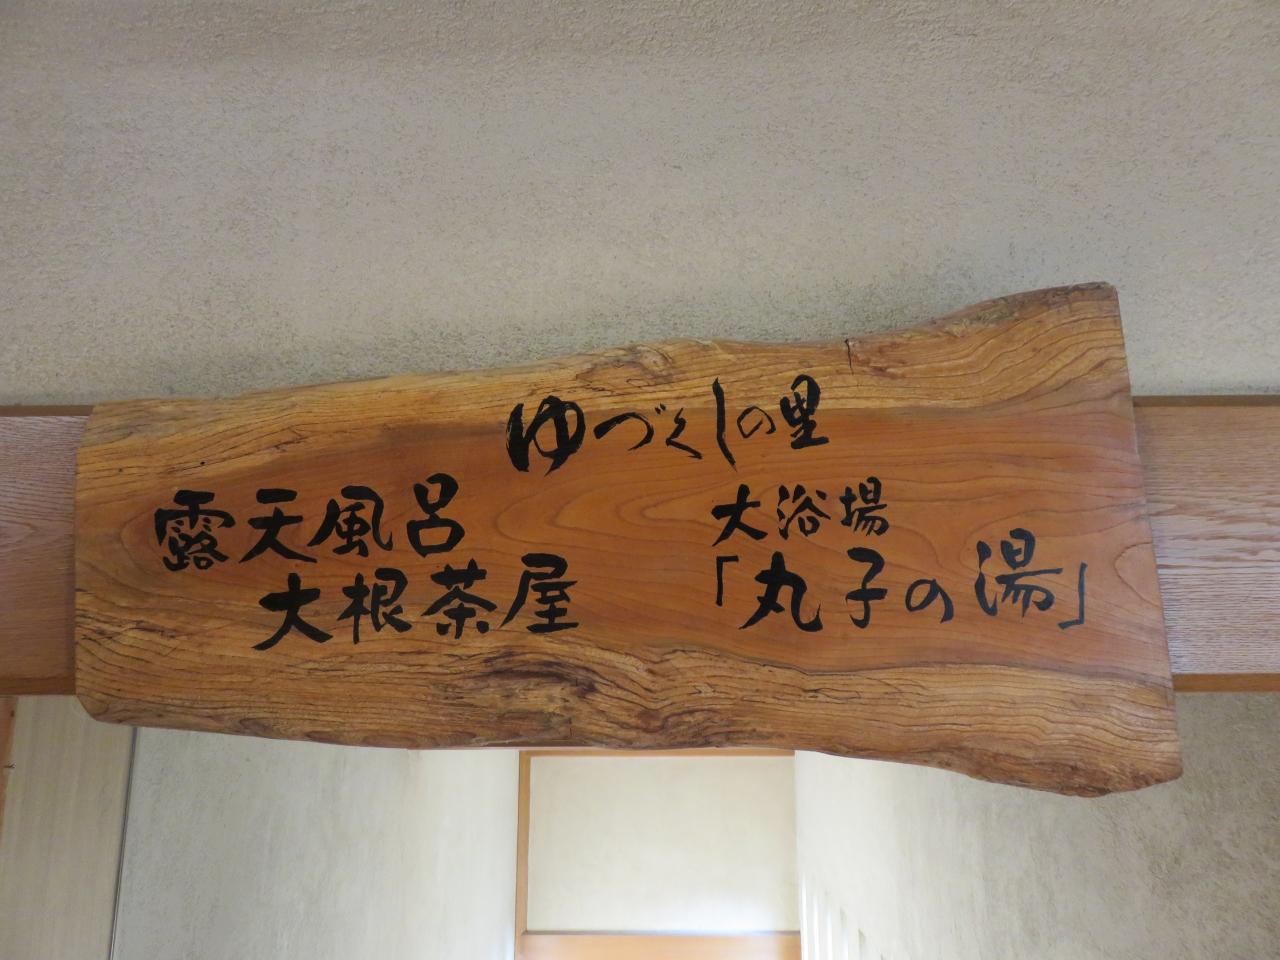 ゆづくしの里
大浴場
「丸子の湯」
露天風呂
大根茶屋